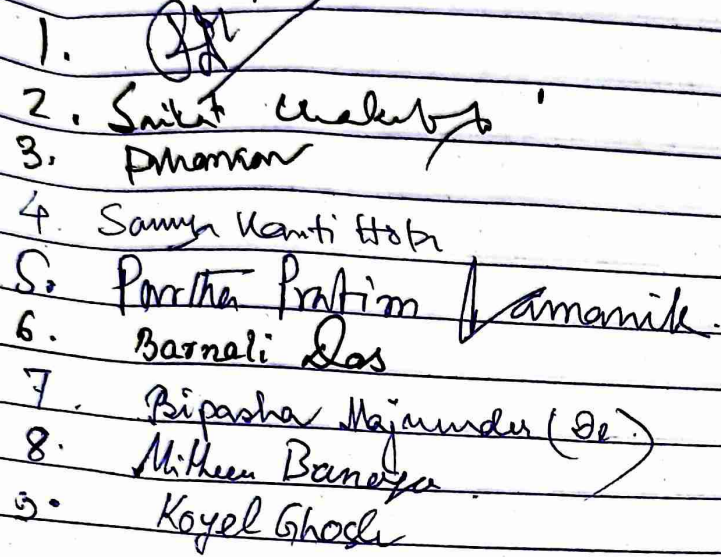 1.
2. Srikit Chakraborty
3.
4. Saumya Kanti Hota
5. Partha Pratim Pramanik.
6. Barnali Das
7. Bipasha Majumder (De)
8. Mithun Banerjee
9. Koyel Ghosh